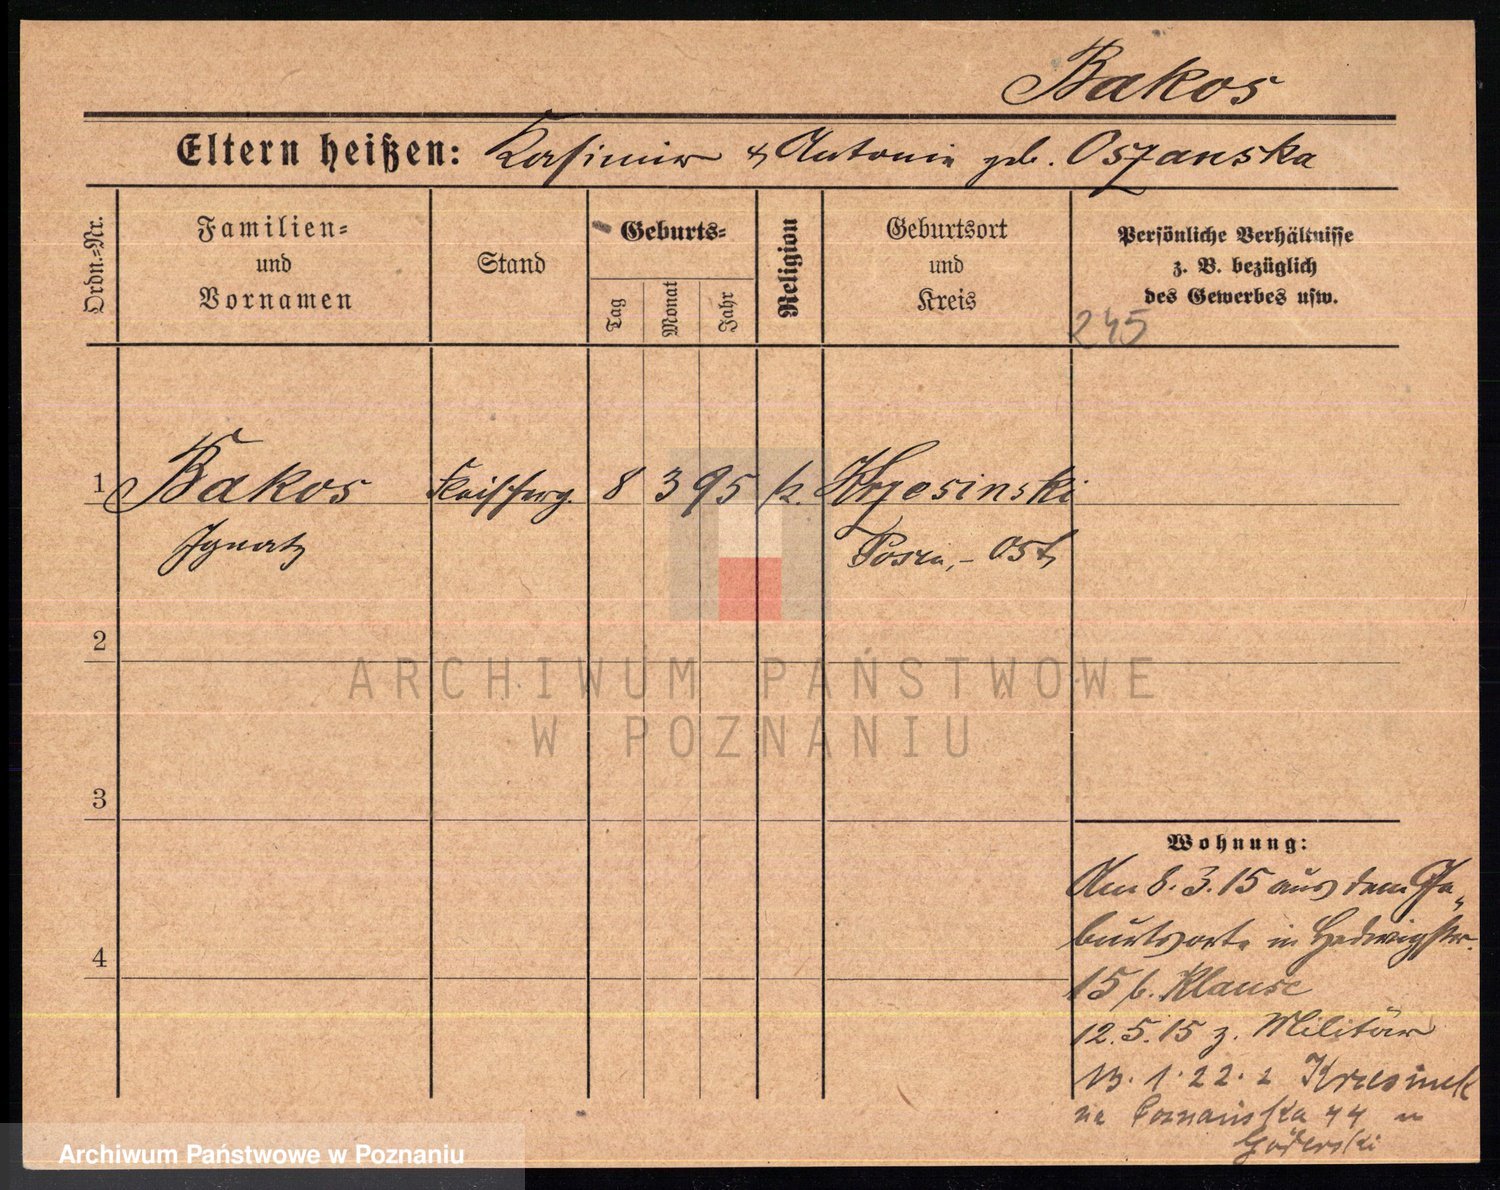 Bakos
Eltern heißen: Kasimir & Antonie geb. Oszanska
Ordn.-Nr.
Familien-
und
Vornamen
Stand
Geburts-
Tag
Monat
Jahr
Religion
Geburtsort
und
Kreis
Persönliche Verhältnisse
z. B. bezüglich
des Gewerbes usw.
245
1 Bakos 8 3 95 k. Krzesinski
Ignatz Posen,- Ost
2
ARCHIWUM PAŃSTWOWE
W POZNANIU
3
Wohnung:
Am 8.3.15 aus dem Ge-
burtsorte in Hedwigstr.
15 b. Klause
4
12.5.15 z. Militär
13.1.22. z Krzesinek
na Poznańska 44 u
Archiwum Państwowe w Poznaniu